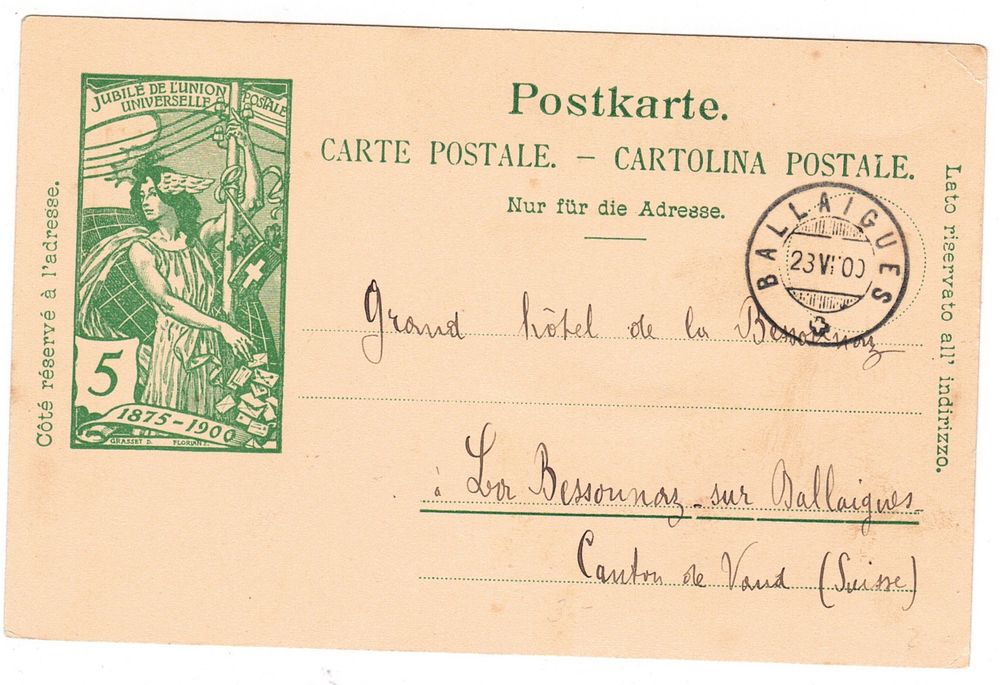 JUBILÉ DE L'UNION
UNIVERSELLE POSTALE
5
1875-1900
GRASSET D. FLORIAN
Côté réservé à l'adresse.
Postkarte.
CARTE POSTALE. – CARTOLINA POSTALE.
Nur für die Adresse.
BALLAIGUES
23 VI 00
Lato riservato all' indirizzo.
Grand hôtel de la Bessonnaz
à La Bessonnaz sur Ballaigues
Canton de Vaud (Suisse)